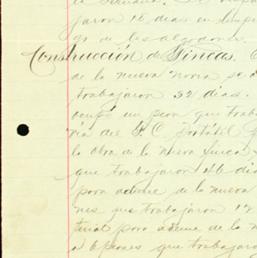 jaron 18 dias en limpie
go de los algodones.
Construcción de Fincas. C
de la nueva noria se o
trabajaron 32 dias.
ocupó un peon que trab
ria del F.C. Portátil
la obra de la nueva finca
que trabajaron 46 dia
para ademe de la nueva
nes que trabajaron 12
para ademe de la n
a 6 peones que trabajaro